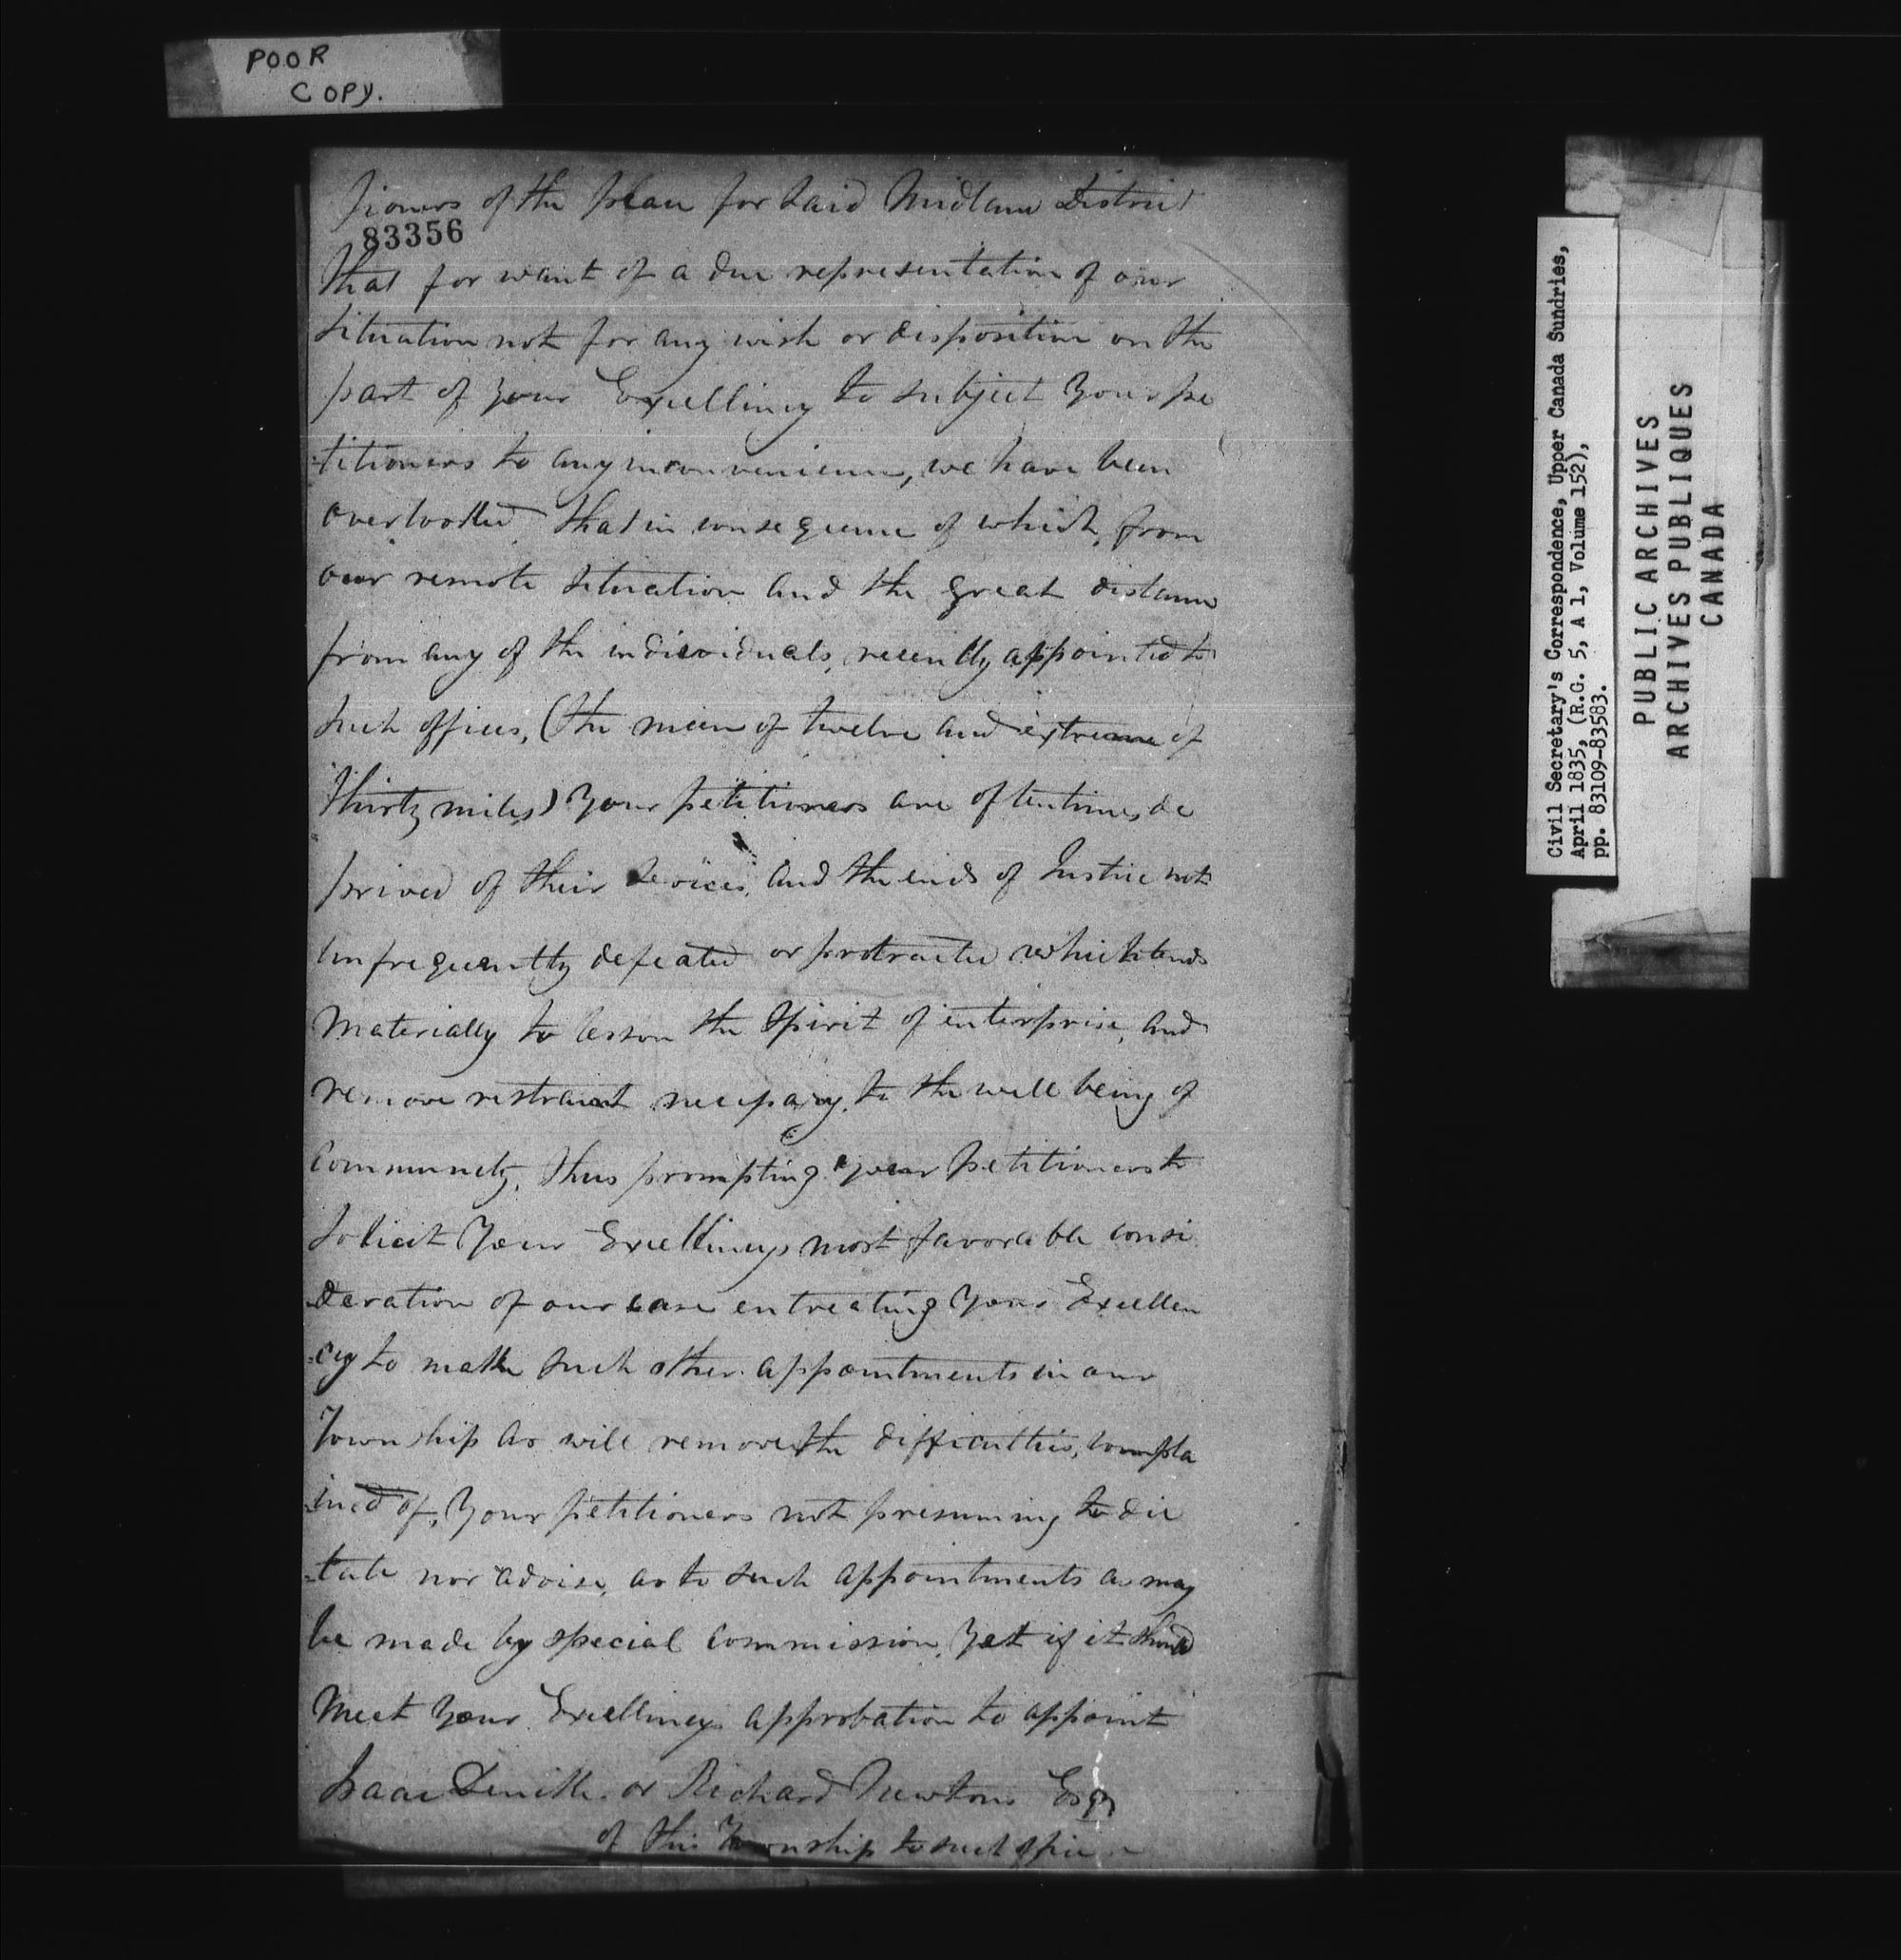 POOR
COPY.
sioners of the peace for said Midland District
83356
That for want of a due representation of our
situation not for any wish or disposition on the
part of your Excellency to subject Your pe
titioners to any inconvenience, we have been
overlooked That in consequence of which, from
our remote situation and the great distance
from any of the individuals, recently appointed to
such offices, (the mean of twelve and extreme of
Thirty miles) Your petitioners are oftentimes de
prived of their services, and the ends of Justice not
unfrequently defeated or protracted which tends
Materially to lesson the Spirit of enterprise, and
remove restraint necessary to the well being of
Community, Thus prompting your petitioners to
Solicit Your Excellencys most favorable consi
deration of our case entreating Your Excellen
cy to make such other appointments in our
Township as will remove the difficulties, compla
ined of, Your petitioners not presuming to dic
=tate nor advise, as to such appointments as may
be made by special commission, Yet if it should
Meet Your Excellencys approbation to appoint
Isaac or Richard Newtons Esqr
of this Township to such office
Civil Secretary's Correspondence, Upper Canada Sundries,
April 1835, (R.G. 5, A 1, Volume 152),
pp. 83109-83583.
PUBLIC ARCHIVES
ARCHIVES PUBLIQUES
CANADA